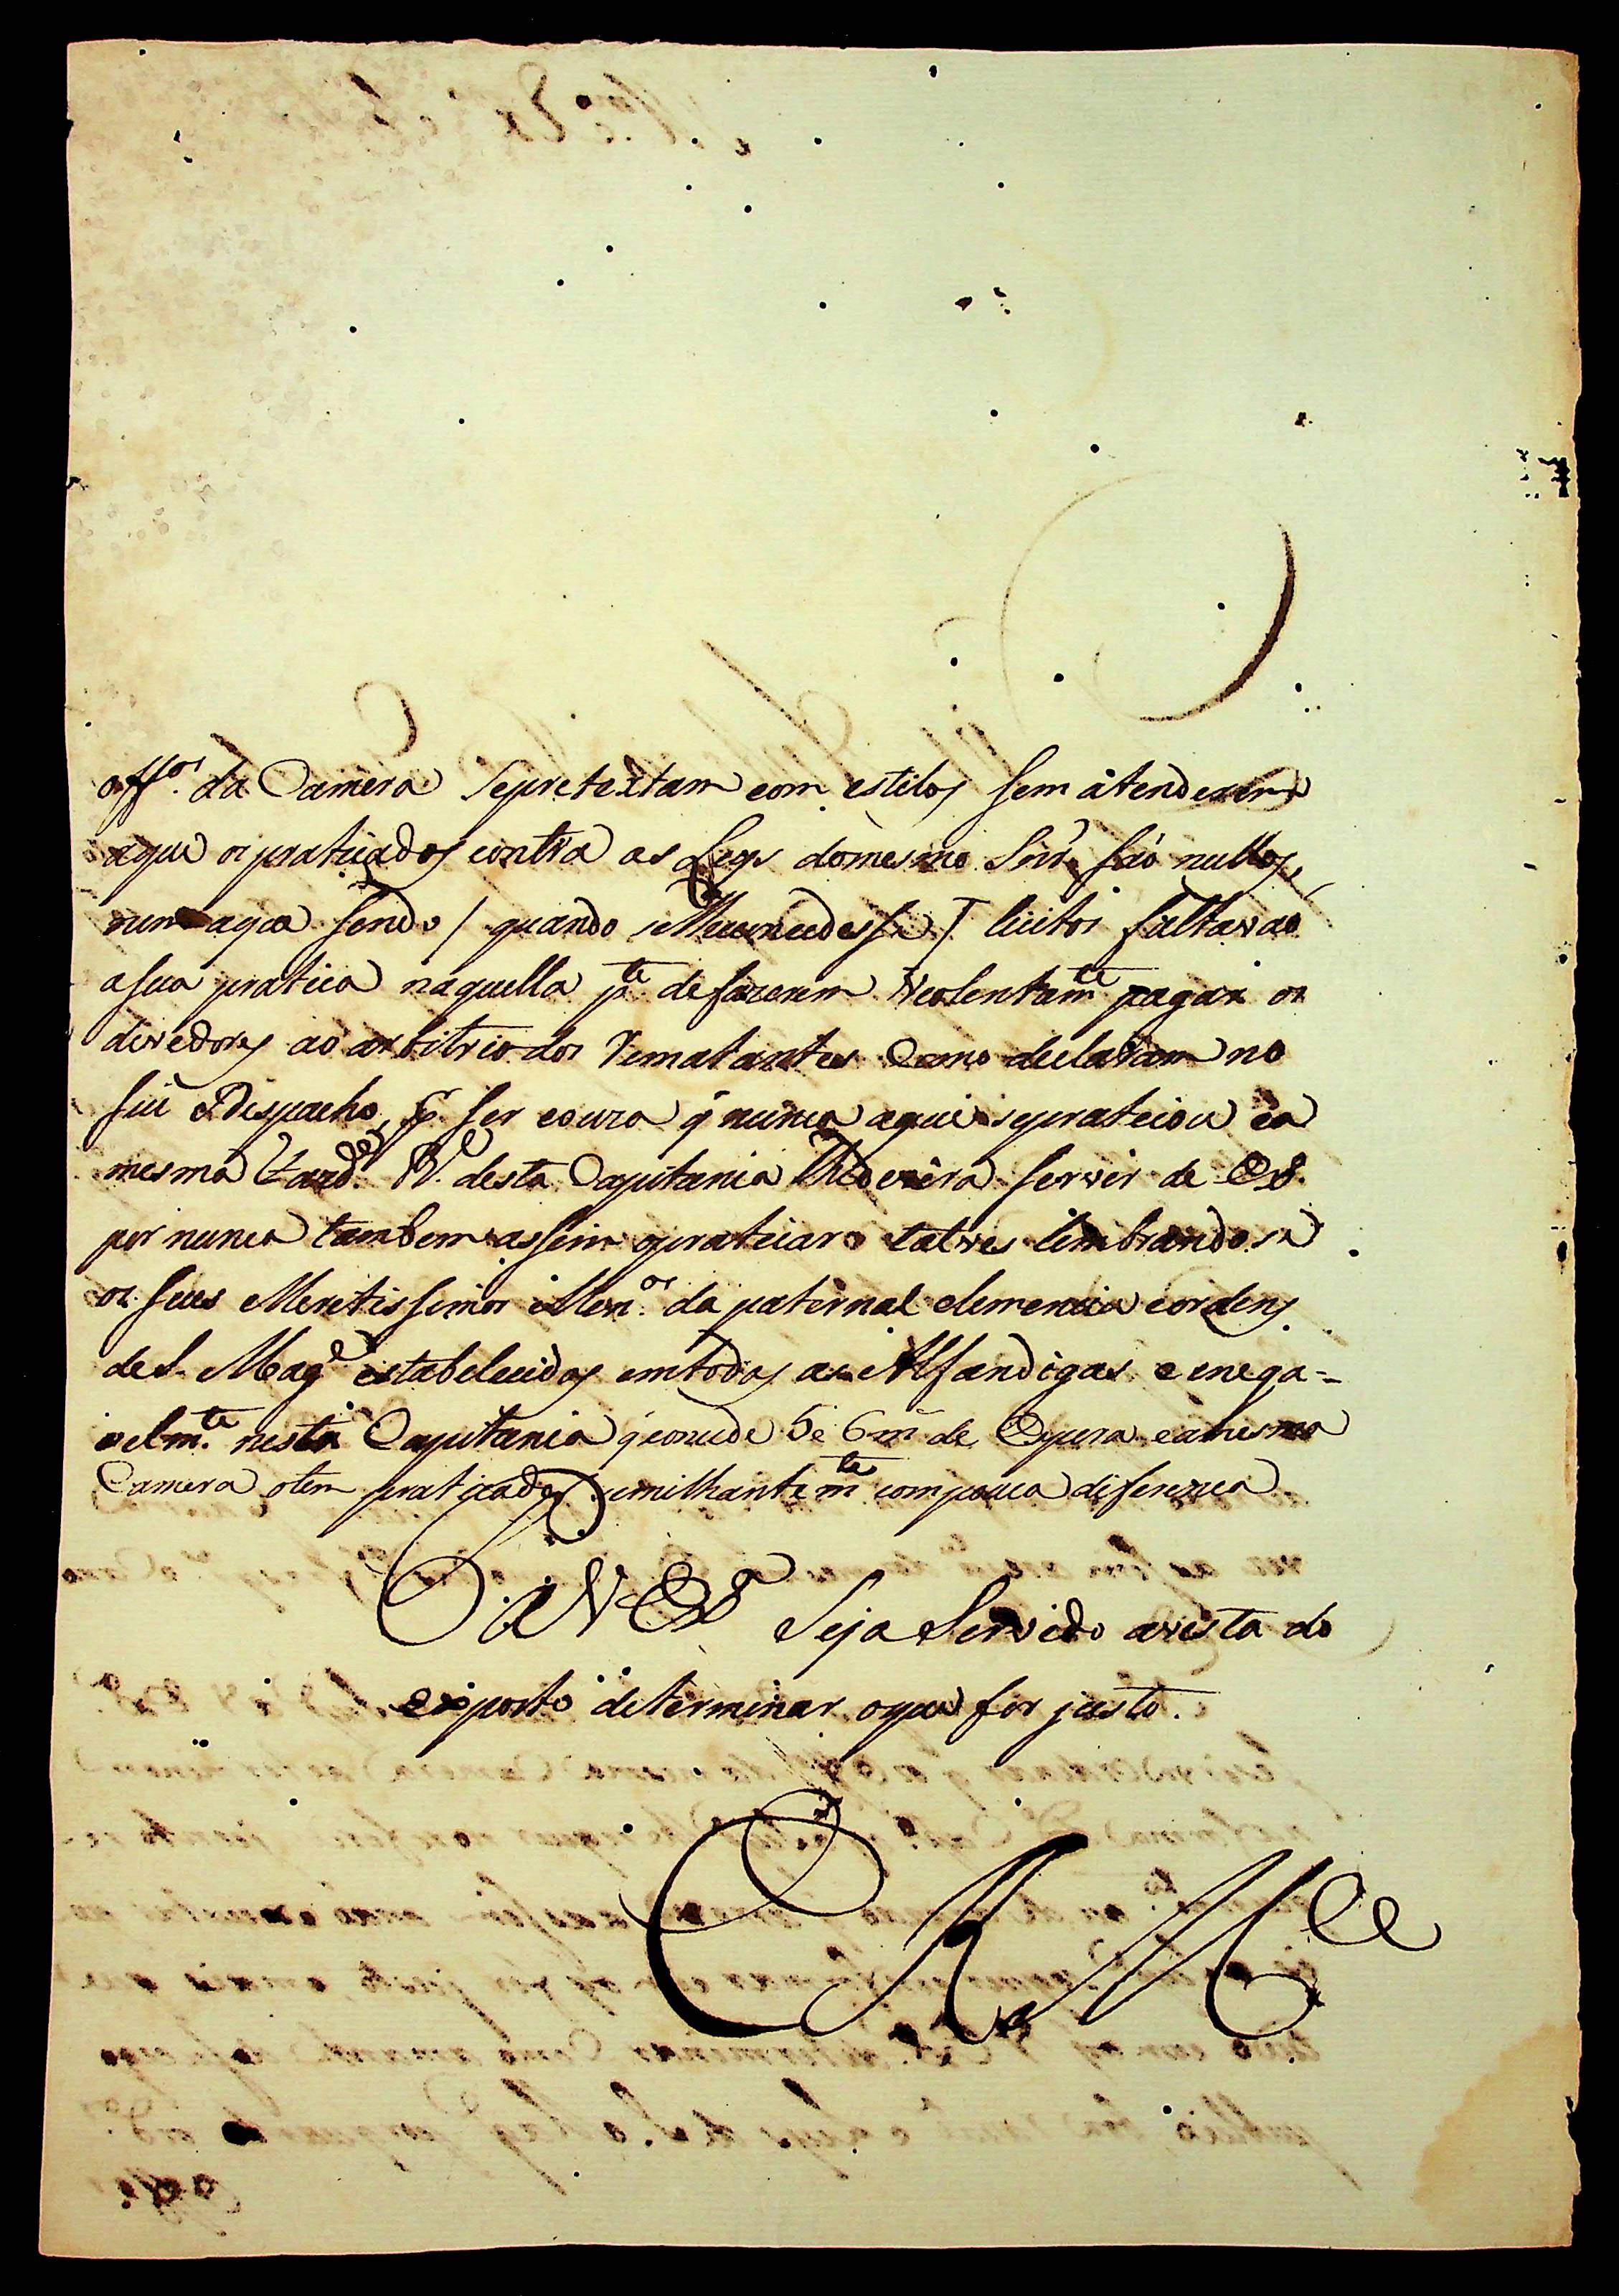 off.os da Camera sepretextam com estilos sem atenderem
aque os praticados contra as Leys domesmo Snr. são nullos,
nunca sendo / quando Merecedesse / licitos faltar ao
asua pratica naquella p.te defazerem violentam.te pagar os
divedores ao arbitrio dos rematantes como declaram no
seu Despacho, p. ser couza q nunca aqui sepraticou ea
mesma Fazd.a R.l desta Capitania lhe devêra servir de
por nunca tambem assim opraticar talves lembrandose
os seus Meretissimos Men.os da paternal clemencia eordens
deS. Mag.e estabelecidas emtodas as Alfandigas, e inega-
velm.te nesta Capitania q concede 5 e 6 m de Espera eamesma
Camera otem praticado similhantem.te compouca diferença
P. a V. Ex.a Seja Servido avista do
exposto determinar oque for justo.
E R M.ce